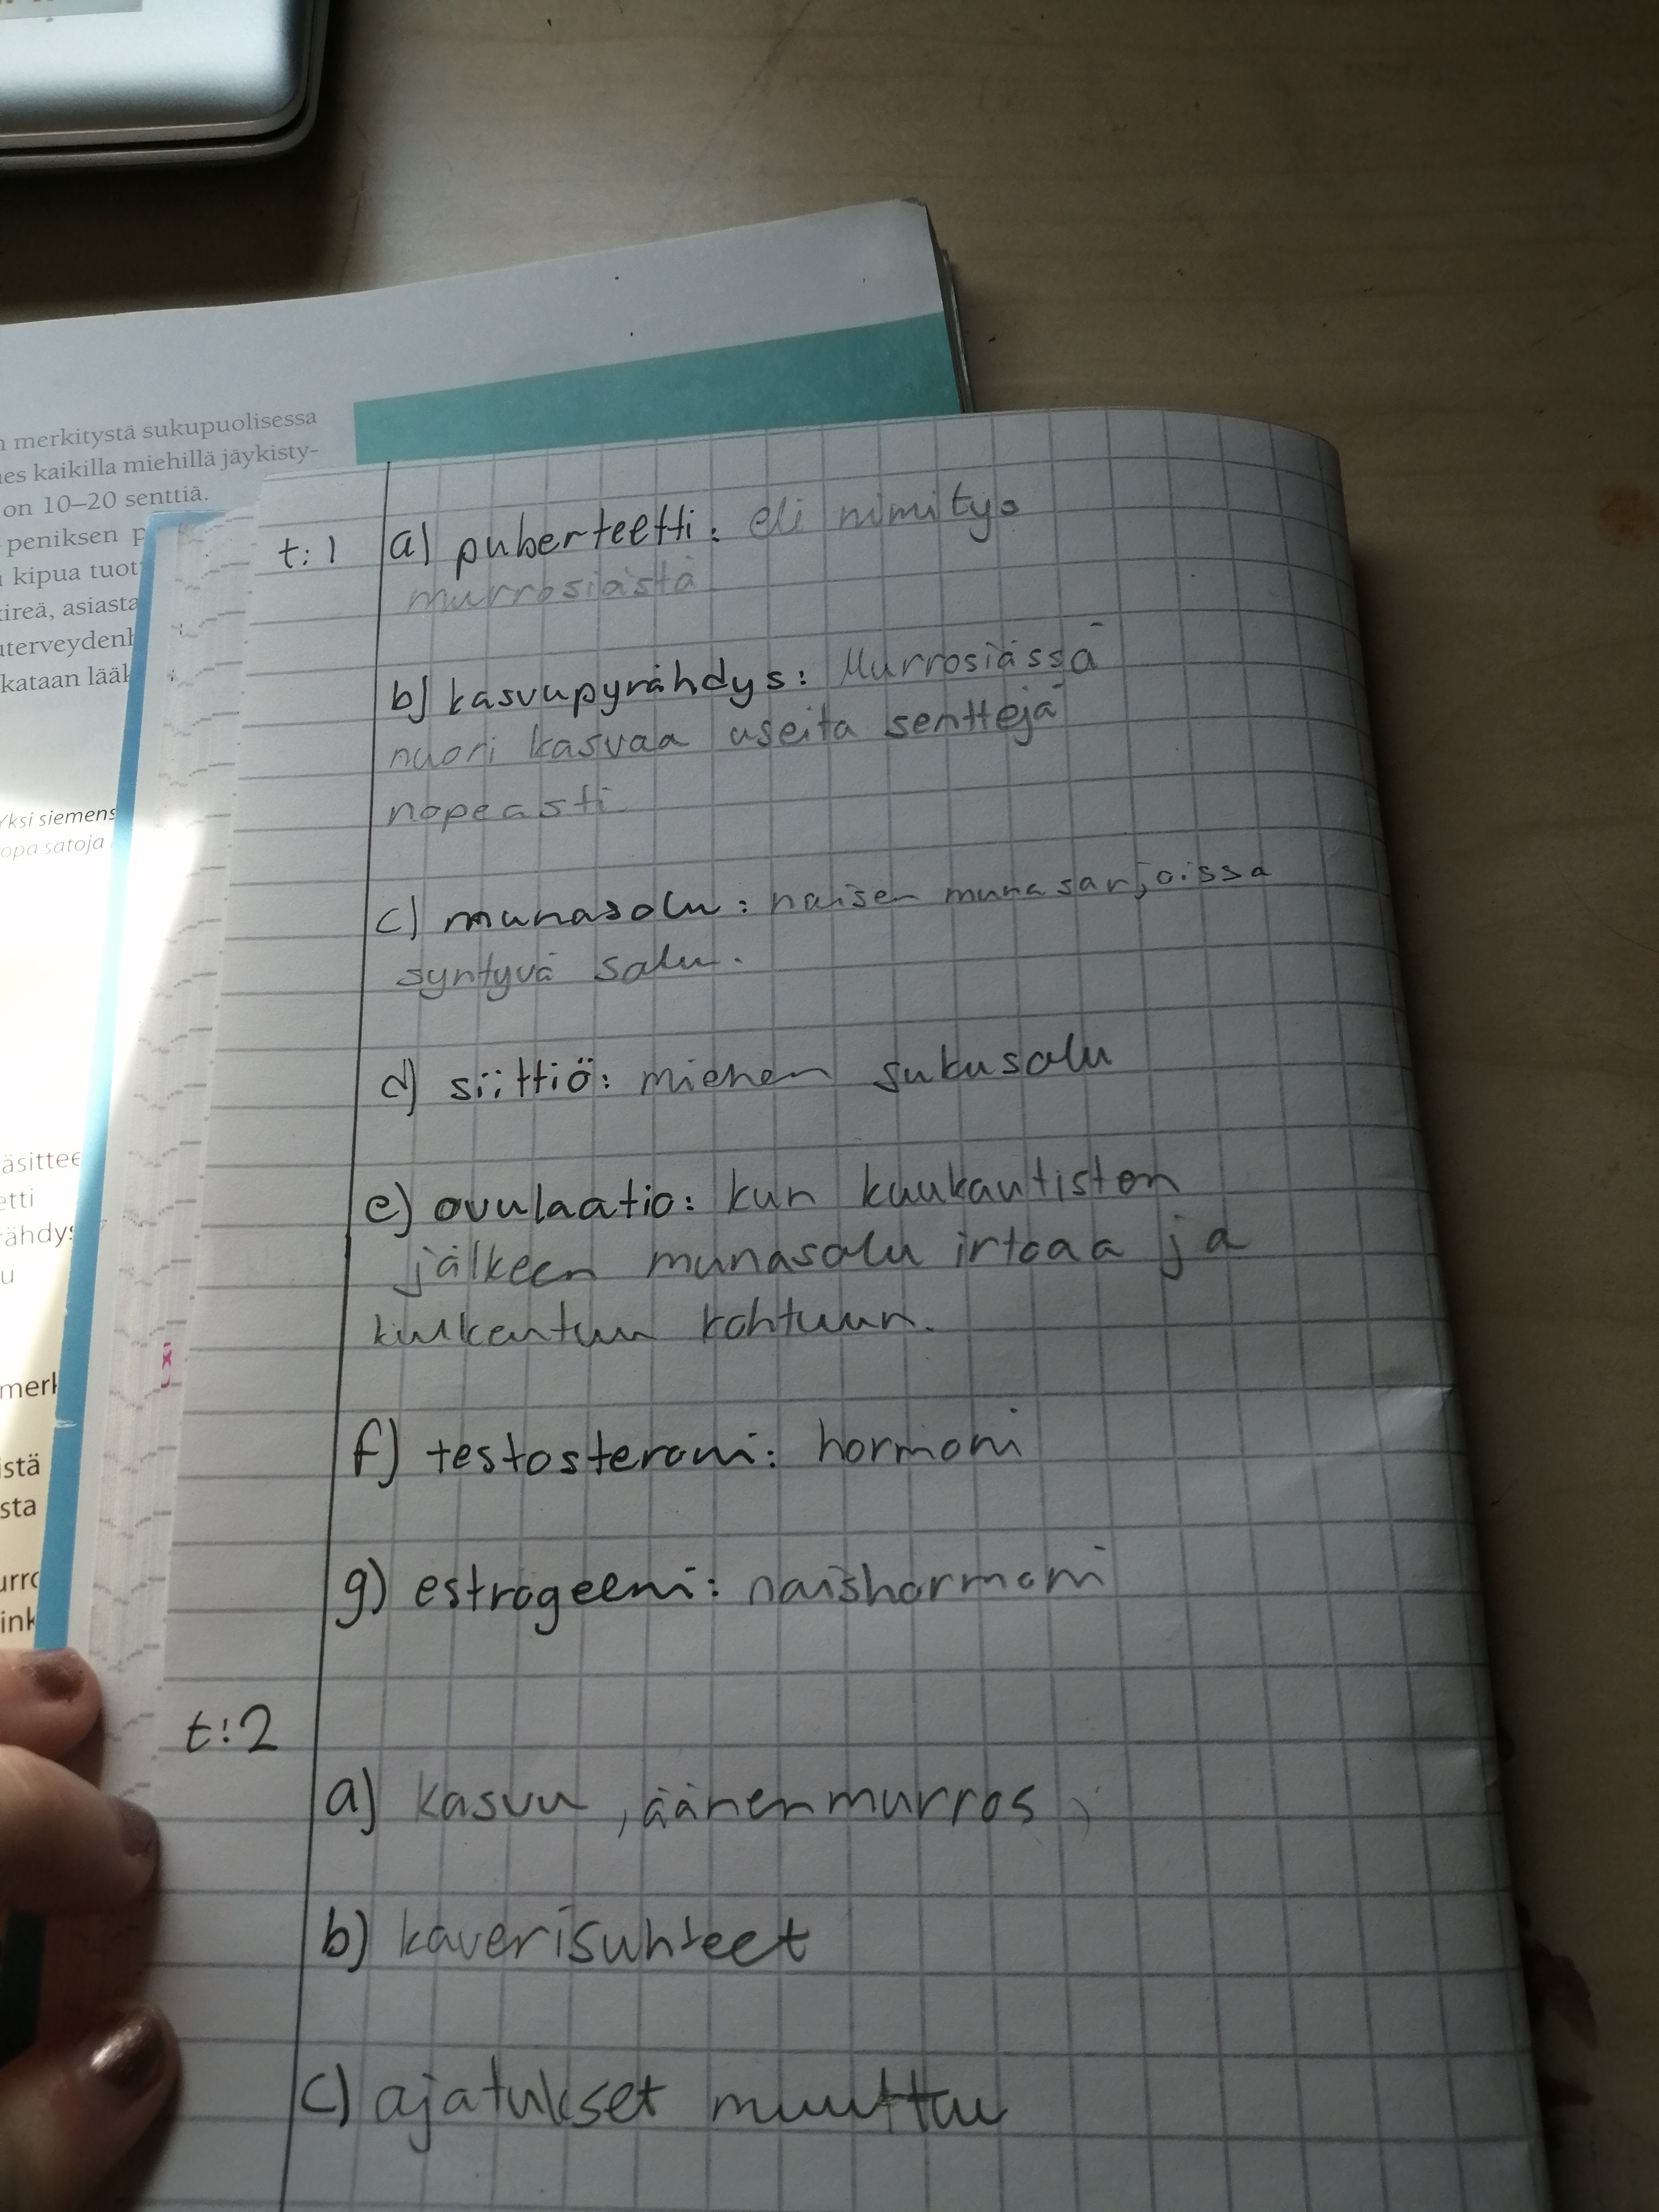 merkitystä sukupuolisessa
kaikilla miehillä jäykisty-
on 10–20 senttiä.
peniksen
kipua
asiasta
kataan
Yksi siemens
opa satoja
t:1 a) puberteetti: eli nimitys
murrosiästä
b) kasvupyrähdys: Murrosiässä
nuori kasvaa useita senttejä
nopeasti
c) munasolu: naisen munasarjoissa
syntyvä solu.
d) siittiö: miehen sukusolu
e) ovulaatio: kun kuukautisten
jälkeen munasolu irtoaa ja
kulkeutuu kohtuun.
f) testosteroni: hormoni
g) estrogeeni: naishormoni
t:2
a) kasvu, äänenmurros,
b) kaverisuhteet
c) ajatukset muuttuu